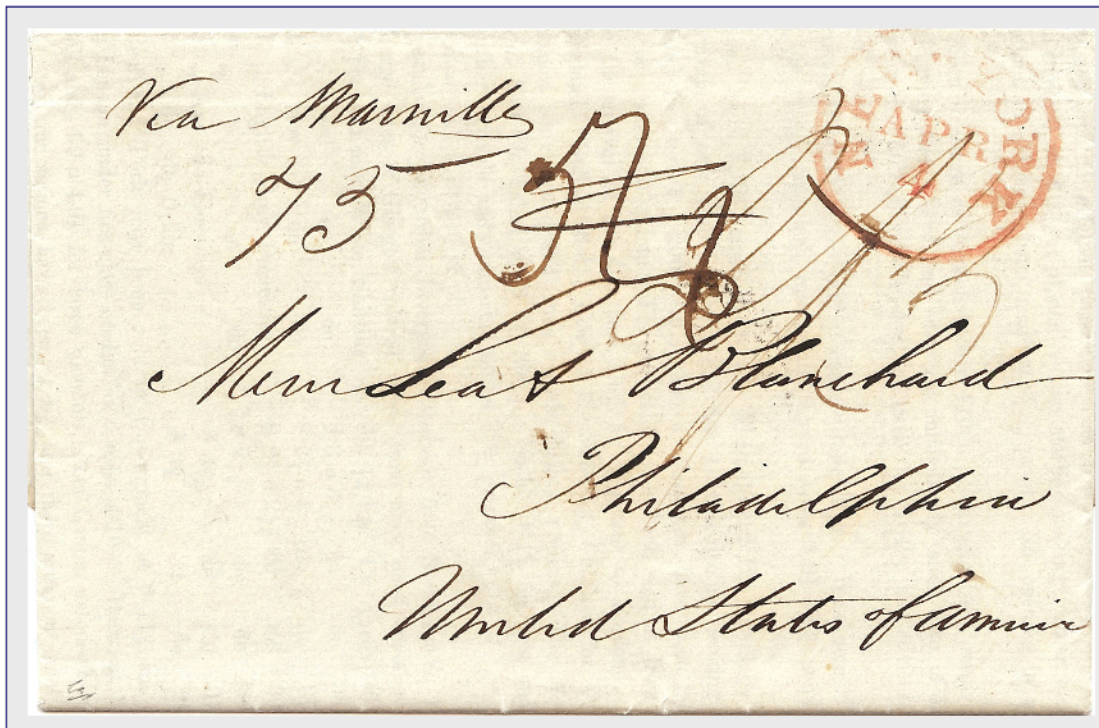 Via Marseilles
NEW-YORK
APR
4
75
Messrs Lea & Blanchard
Philadelphia
United States of America